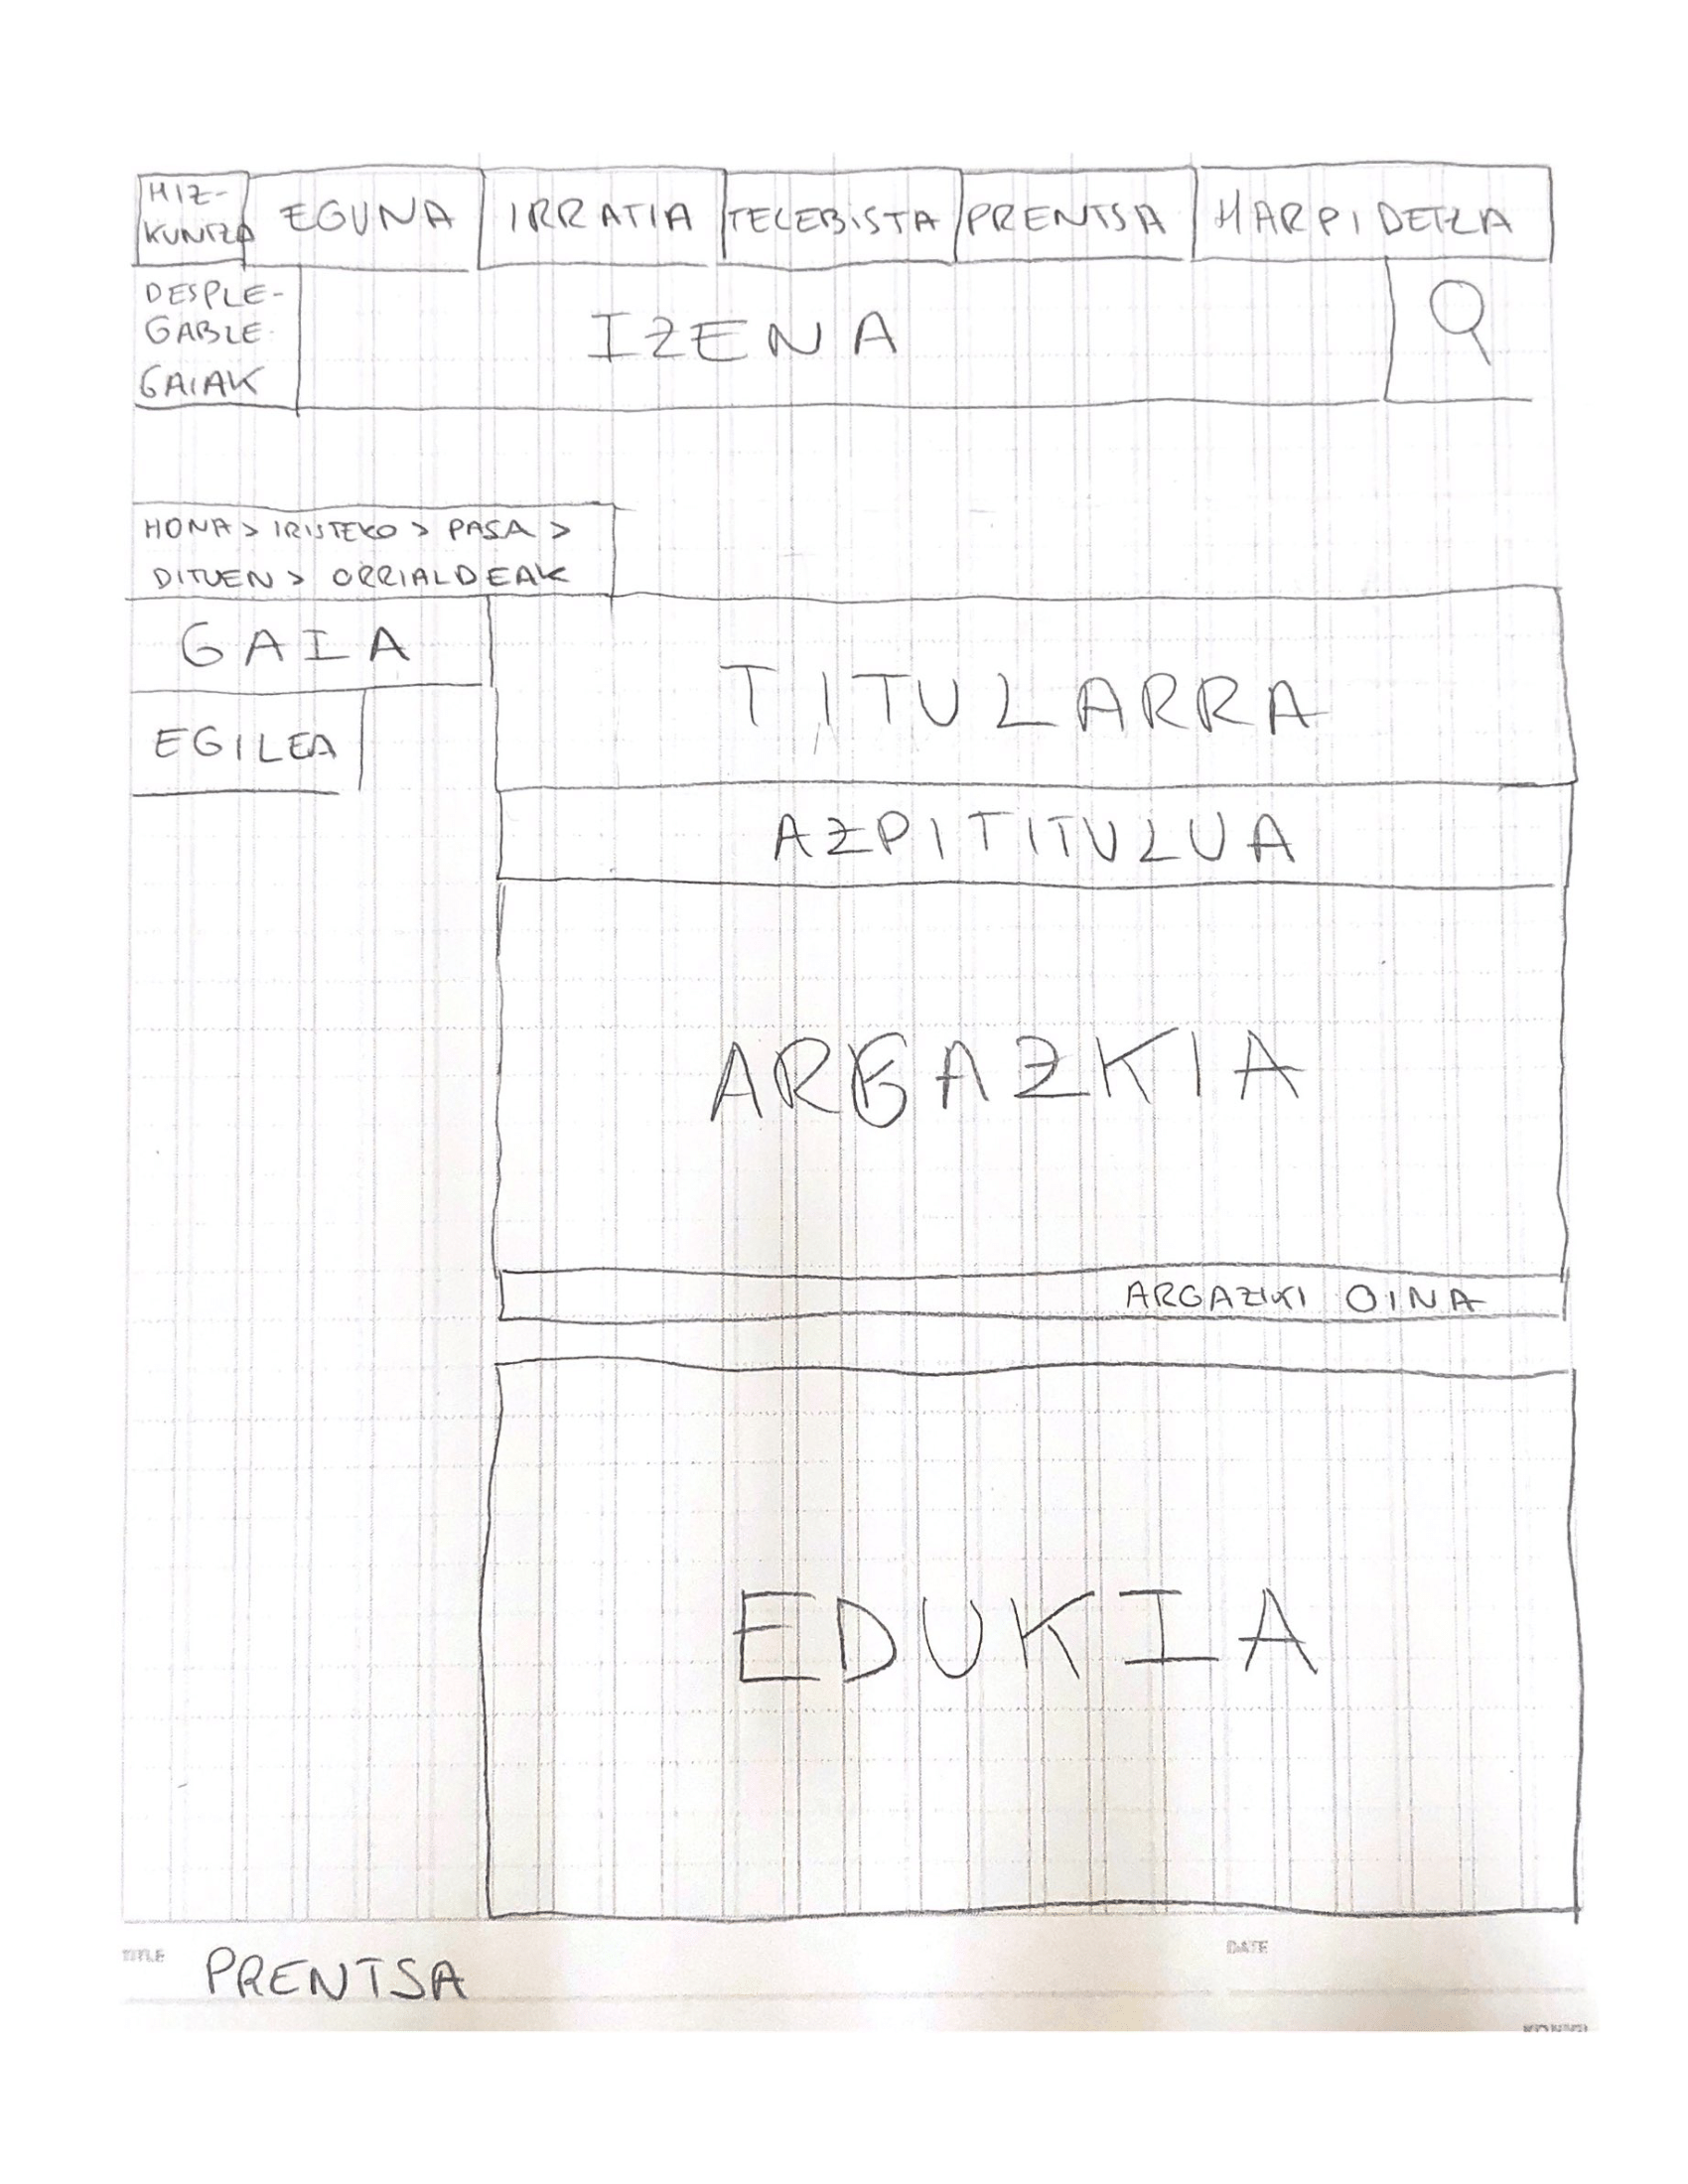 HIZ-
KUNTZA EGUNA IRRATIA TELEBISTA PRENTSA HARPIDETZA
DESPLE-
GABLE
GAIAK
IZENA
HONA > IRISTEKO > PASA >
DITUEN > ORRIALDEAK
GAIA
EGILEA
TITULARRA
AZPITITULUA
ARGAZKIA
ARGAZKI OINA
EDUKIA
TITLE PRENTSA
DATE